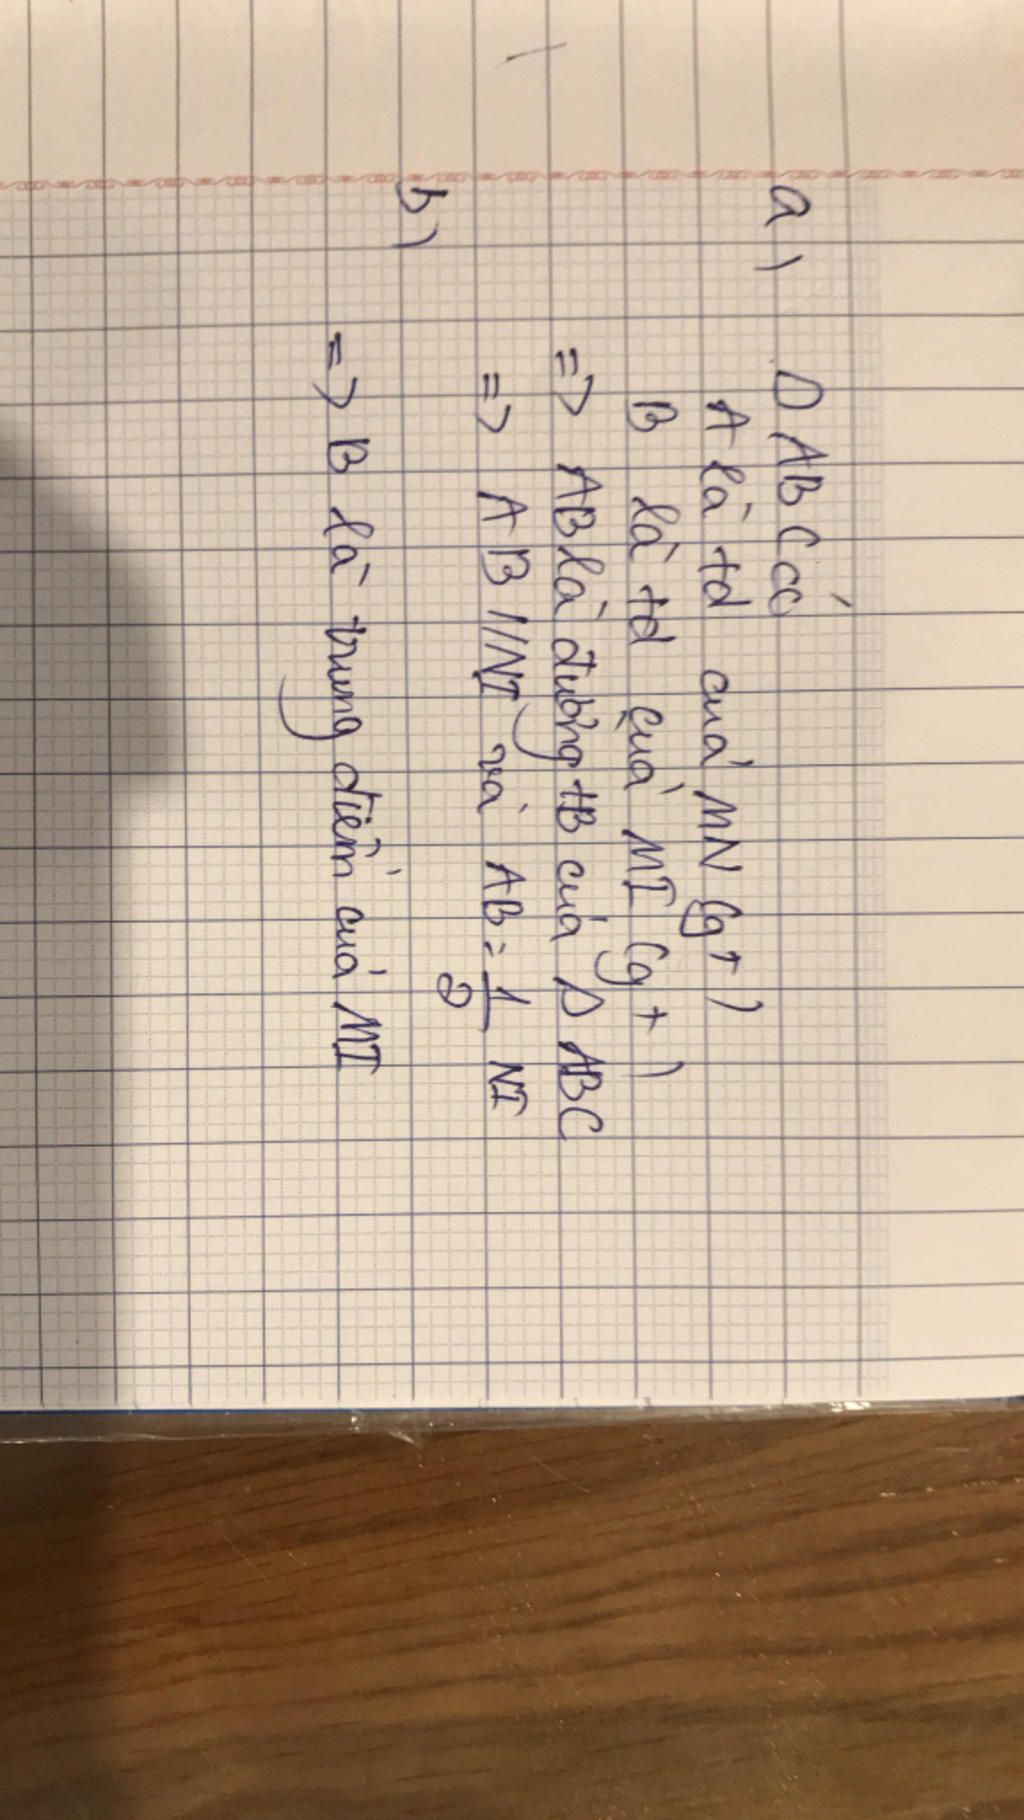 a) Δ ABC có
A là td cuả MN (gt)
B là td cuả MI (gt)
=> AB là đường tB của Δ ABC
=> AB // NI và AB = 1/2 NI
b)
=> B là trung điểm cuả MI